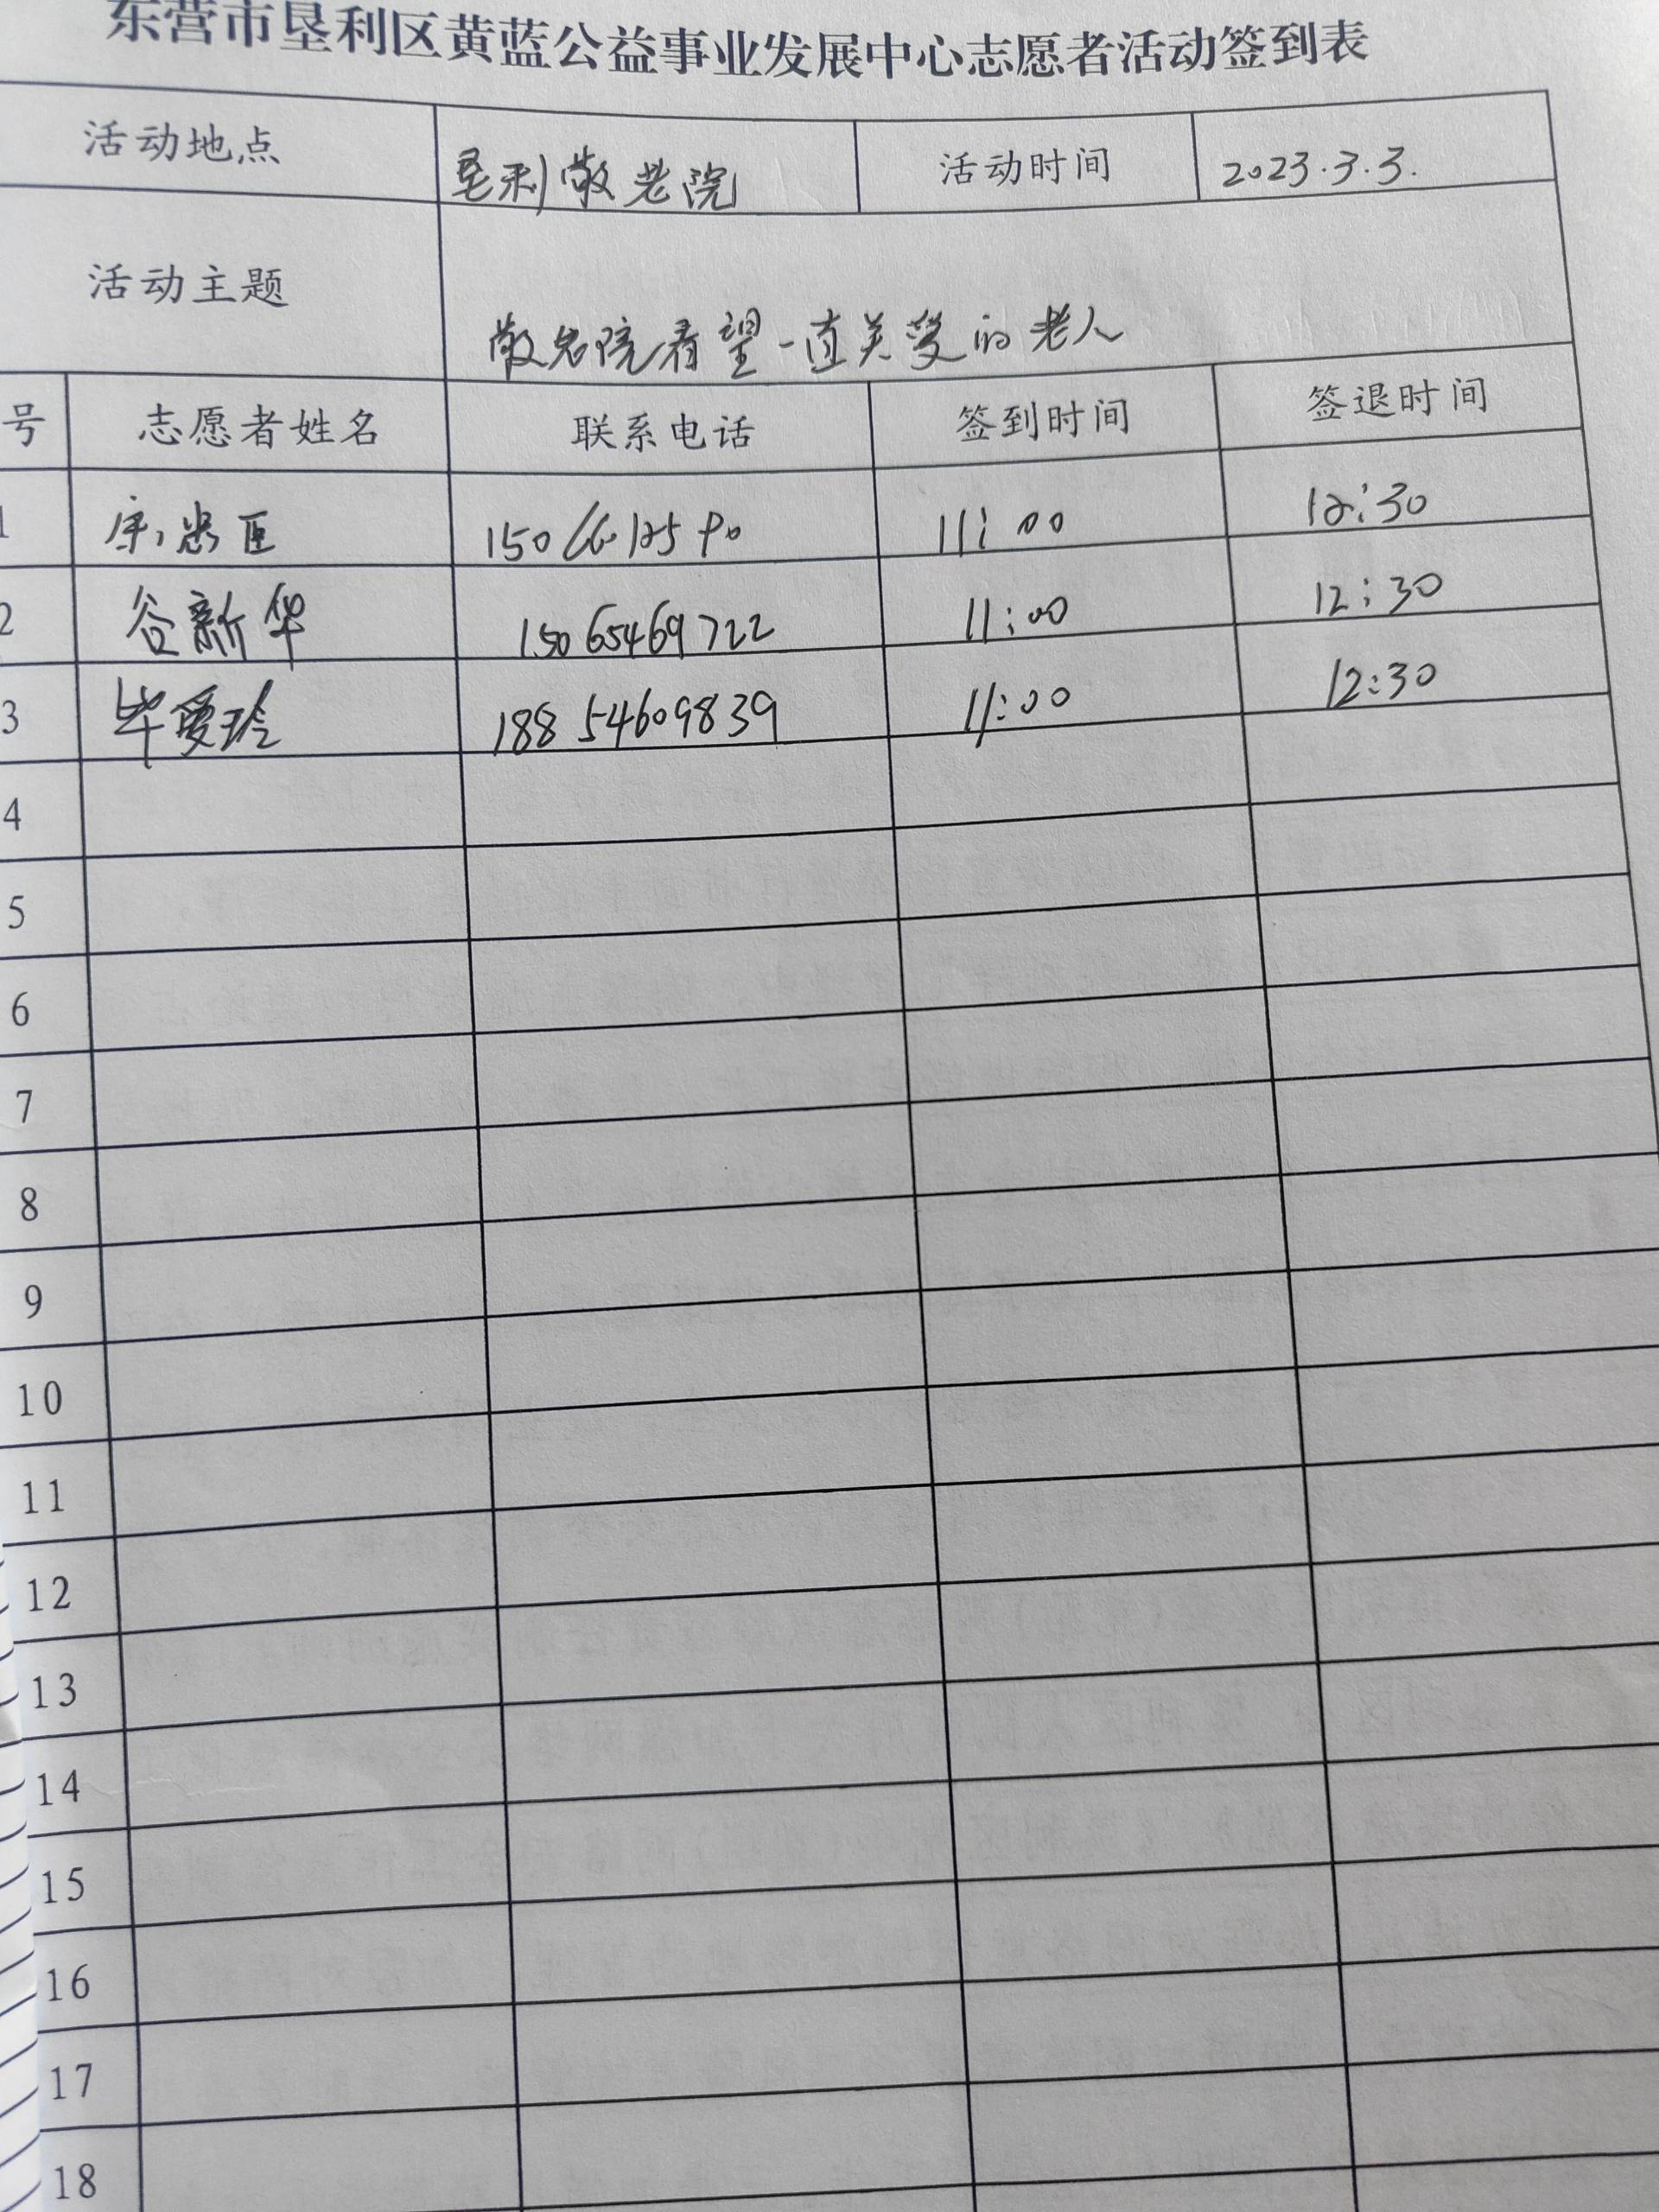 东营市垦利区黄蓝公益事业发展中心志愿者活动签到表
活动地点 垦利敬老院 活动时间 2023.3.3.
活动主题 敬老院看望一直关爱的老人
号 志愿者姓名 联系电话 签到时间 签退时间
1 11:00 12:30
2 谷新华 15065469722 11:00 12:30
3 毕爱玲 18854609839 11:00 12:30
4
5
6
7
8
9
10
11
12
13
14
15
16
17
18